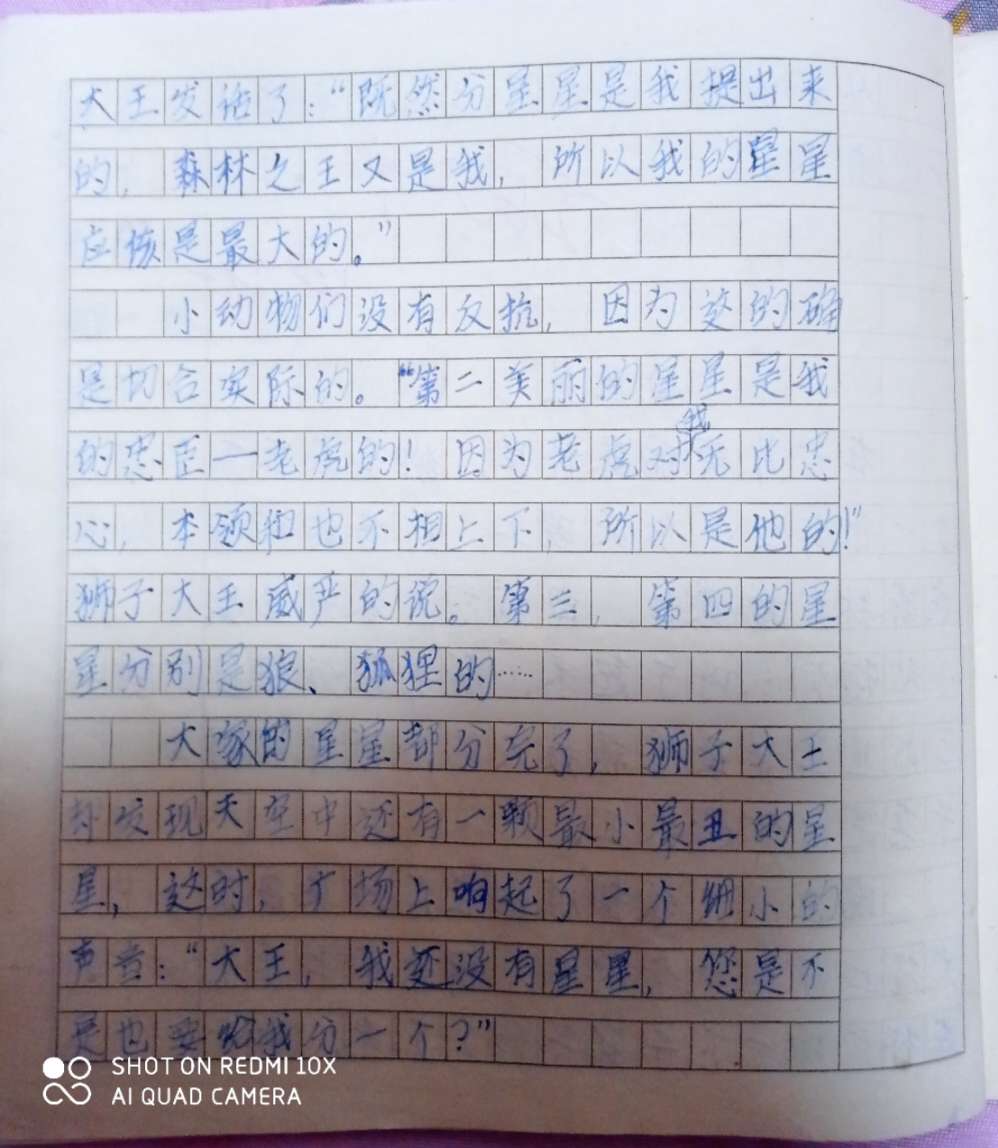 大王发话了：“既然分星星是我提出来
的，森林之王又是我，所以我的星星
应该是最大的。”
小动物们没有反抗，因为这的确
是切合实际的。“第二美丽的星星是我
的忠臣—老虎的！因为老虎对我无比忠
心，本领和也不相上下，所以是他的！”
狮子大王威严的说。第三，第四的星
星分别是狼、狐狸的……
大家的星星都分完了，狮子大王
却发现天空中还有一颗最小最丑的星
星，这时，广场上响起了一个细小的
声音：“大王，我还没有星星，您是不
是也要给我分一个？”
SHOT ON REDMI 10X
AI QUAD CAMERA